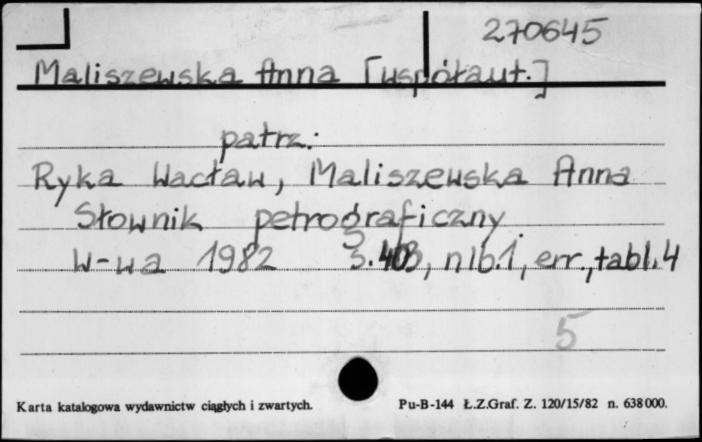 270645
Maliszewska Anna [współaut.]
patrz:
Ryka Wacław, Maliszewska Anna
Słownik petrograficzny
W-wa 1982 s. 403, nlb.1, err., tabl.4
5
Karta katalogowa wydawnictw ciągłych i zwartych. Pu-B-144 Ł.Z.Graf. Z. 120/15/82 n. 638000.